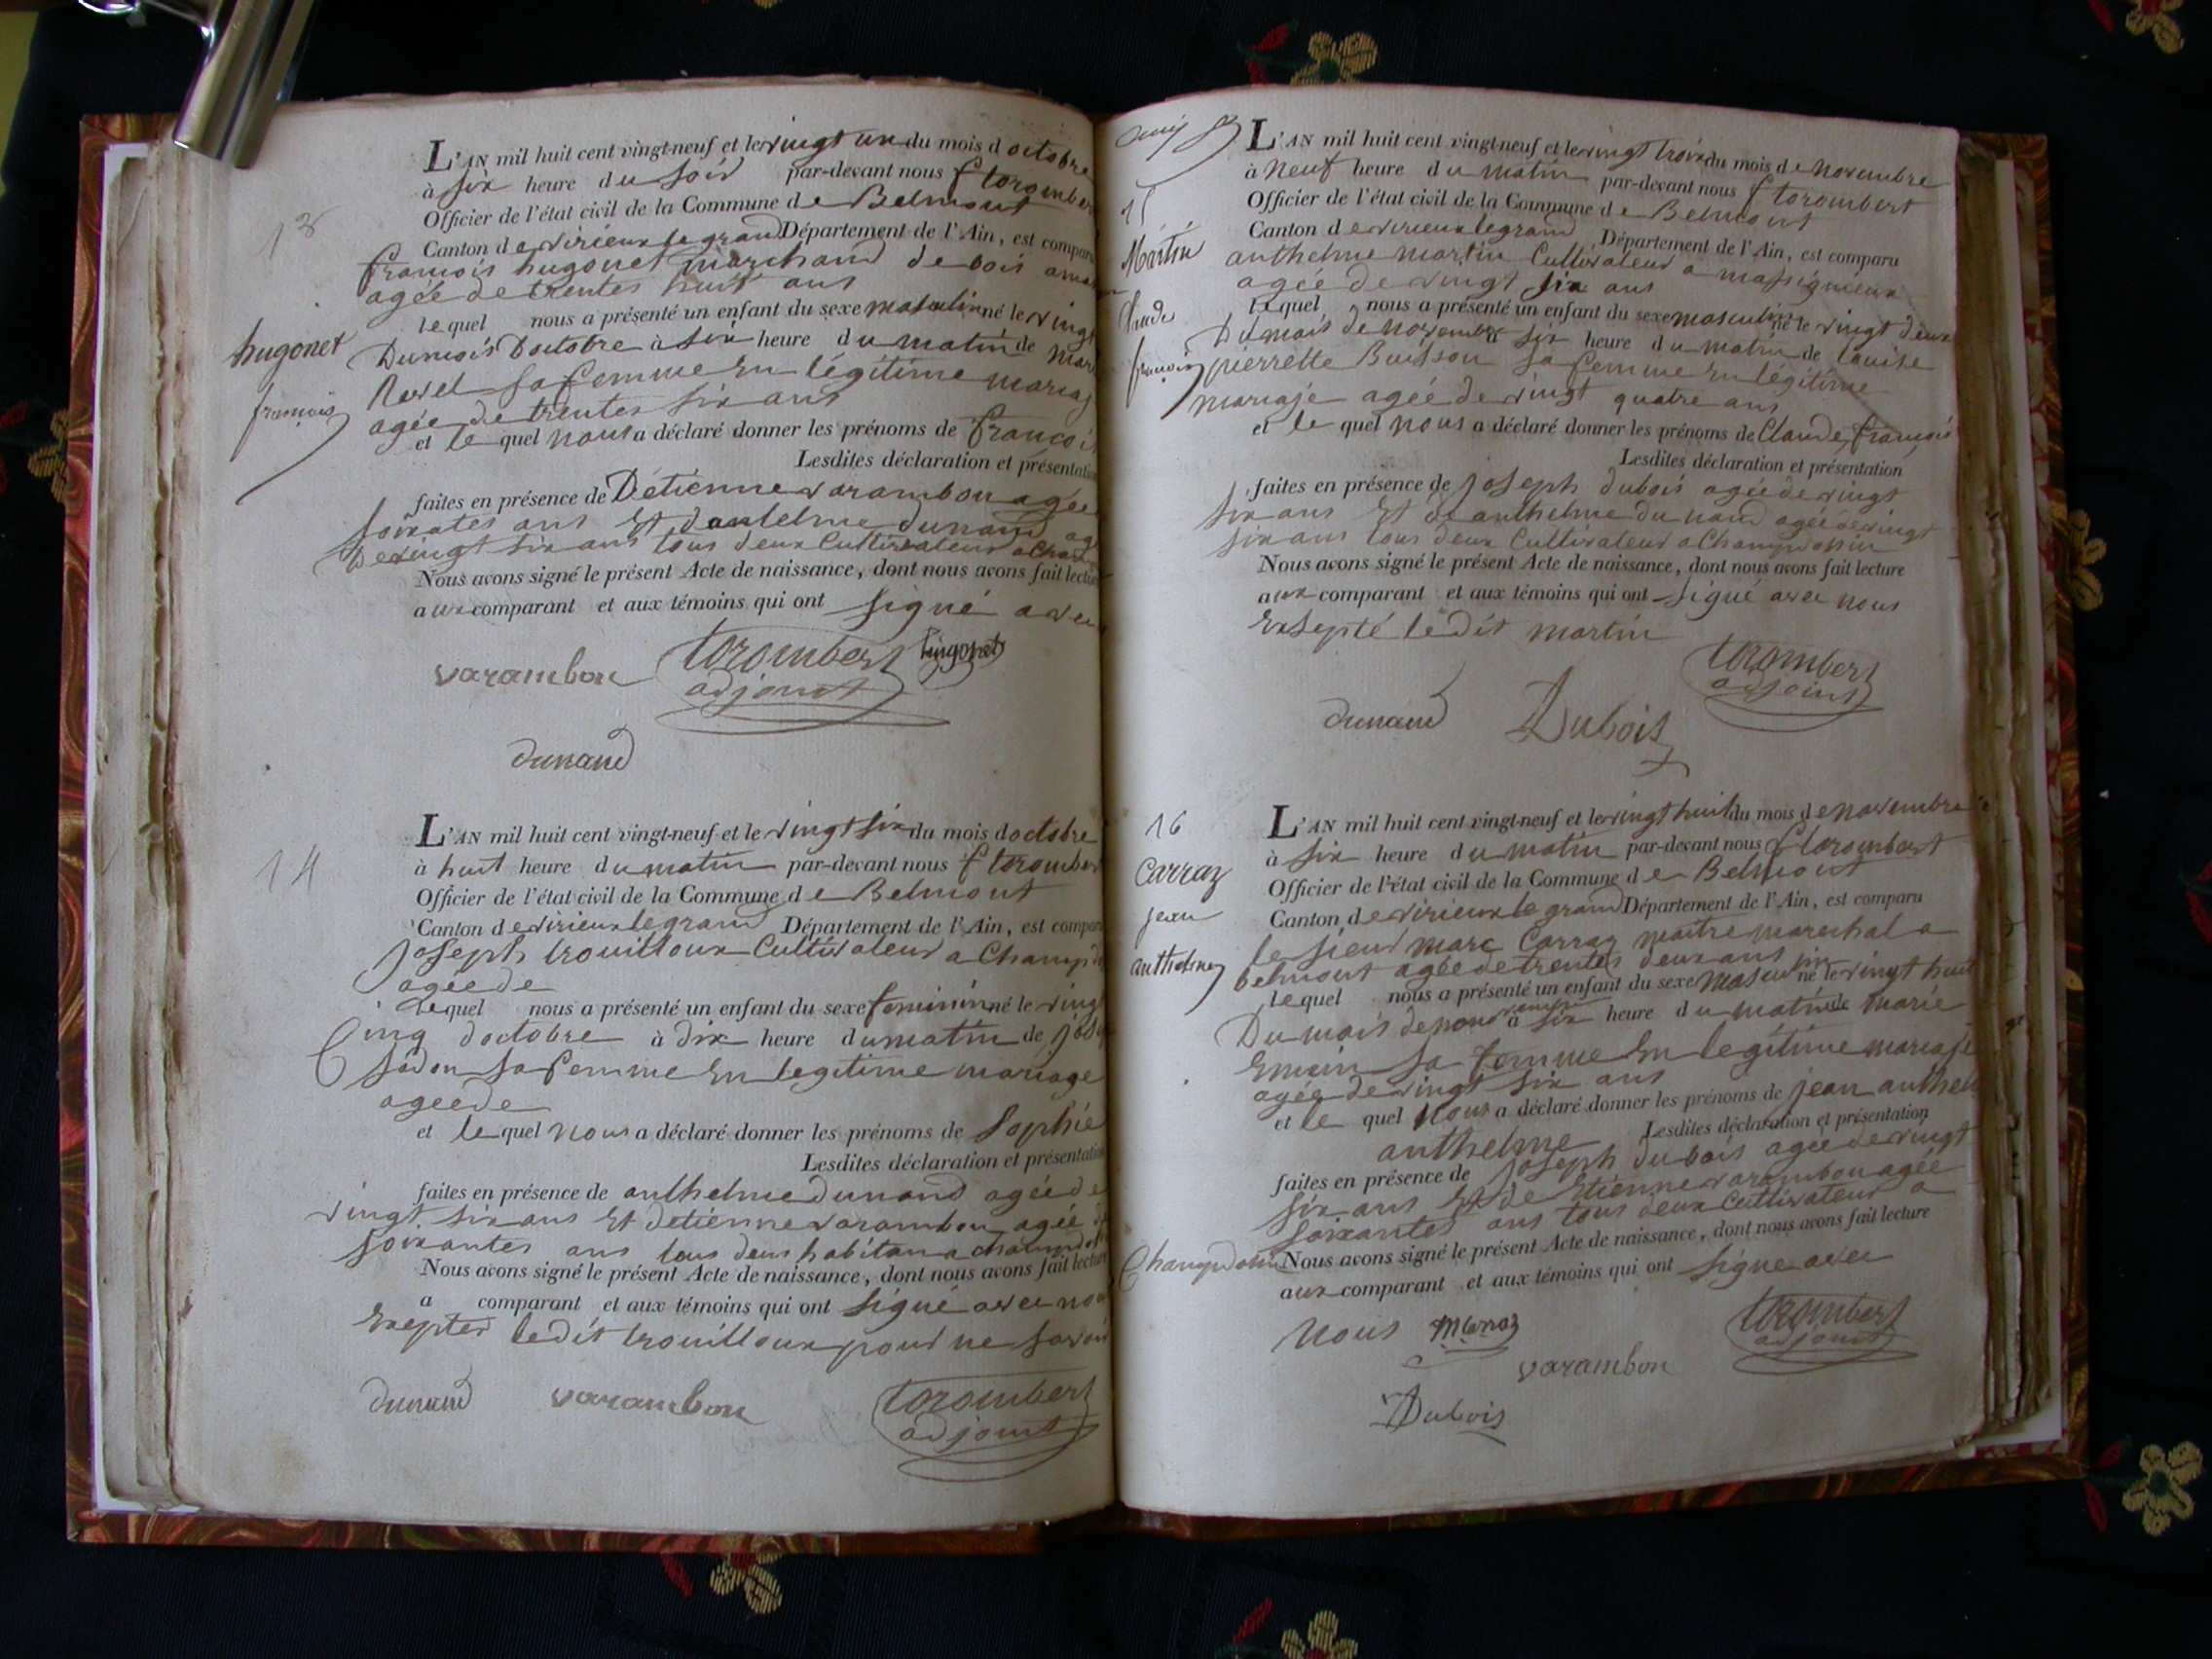 13
L'AN mil huit cent vingt-neuf et le vingt un du mois d octobre
à six heure du soir par-devant nous f torombert
Officier de l'état civil de la Commune de Belmont
Canton de virieux le grand Département de l'Ain, est comparu
françois hugonet marchand de bois a
agée de trentes huit ans
lequel nous a présenté un enfant du sexe masculin né le vingt
Du mois doctobre à six heure du matin de
sa femme En légitime mariaj
agée de trentes six ans
et le quel nous a déclaré donner les prénoms de françois
Lesdites déclaration et présentation
hugonet
françois
faites en présence de Détienne varambon agée
soixates ans Et dantelme dunand agé
De vingt six ans tous deux Cultivateur a
Nous avons signé le présent Acte de naissance, dont nous avons fait lecture
aux comparant et aux témoins qui ont signé avec
varambon torombert hugonet
adjoint
dunand
14
L'AN mil huit cent vingt-neuf et le vingt six du mois doctobre
à huit heure du matin par-devant nous f torombert
Officier de l'état civil de la Commune de Belmont
Canton de virieux le grand Département de l'Ain, est comparu
joseph trouilloux Cultivateur a Champd
agée de
Lequel nous a présenté un enfant du sexe feminin né le vingt
Cinq doctobre à dix heure du matin de
sa femme En legitime mariage
agée de
et le quel nous a déclaré donner les prénoms de Sophie
Lesdites déclaration et présentation
faites en présence de anthelme Dunand agée de
vingt six ans Et detienne varambon agée de
soixantes ans tous deux habitan a
Nous avons signé le présent Acte de naissance, dont nous avons fait lecture
a comparant et aux témoins qui ont signé avec nous
Exepter ledit trouilloux pour ne savoir
dunand varambon torombert
adjoint
15
Martin
Claude
françois
L'AN mil huit cent vingt-neuf et le vingt trois du mois de novembre
à neuf heure du matin par-devant nous f torombert
Officier de l'état civil de la Commune de Belmont
Canton de virieux legrand Département de l'Ain, est comparu
anthelme martin Cultivateur a massignieux
agée de vingt six ans
Lequel nous a présenté un enfant du sexe masculin né le vingt deux
Du mois de novembre à six heure du matin de louise
pierrette Buisson sa femme En légitime
mariaje agée de vingt quatre ans
et le quel nous a déclaré donner les prénoms de Claude, françois
Lesdites déclaration et présentation
faites en présence de joseph dubois agée de vingt
six ans Et de anthelme dunand agée de vingt
six ans tous deux Cultivateur a Champdossin
Nous avons signé le présent Acte de naissance, dont nous avons fait lecture
aux comparant et aux témoins qui ont signé avec nous
Exsepté ledit martin
torombert
adjoint
dunand Dubois
16
Carraz
jean
anthelme
L'AN mil huit cent vingt-neuf et le vingt huit du mois de novembre
à six heure du matin par-devant nous f torombert
Officier de l'état civil de la Commune de Belmont
Canton de virieux le grand Département de l'Ain, est comparu
le sieur marc Carraz maitre marechal a
belmont agée de trentes deux ans
Lequel nous a présenté un enfant du sexe masculin né le vingt huit
Du mois de novembre à six heure du matin de marie
sa femme En legitime mariaje
agée de vingt six ans
et le quel nous a déclaré donner les prénoms de jean anthel
anthelme Lesdites déclaration et présentation
faites en présence de joseph dubois agée de vingt
six ans Et de Etienne varambon agée
soixantes ans tous deux Cultivateur a
Champdossin Nous avons signé le présent Acte de naissance, dont nous avons fait lecture
aux comparant et aux témoins qui ont signé avec
nous torombert
adjoint
varambon
Dubois